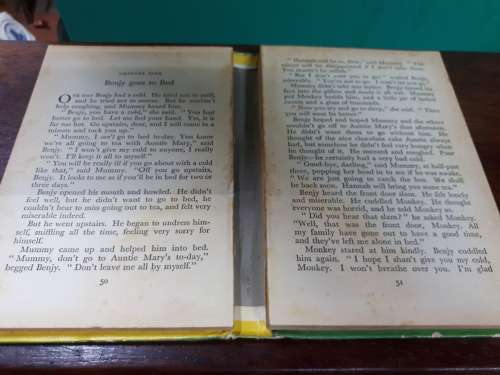 Benjy goes to Bed
ONE day Benjy had a cold. He tried not to sniff,
and he tried not to sneeze. But he couldn't
help coughing, and Mummy heard him.
"Benjy, you have a cold," she said. "You had
better go to bed. Let me feel your hand. Yes, it is
far too hot. Go upstairs, dear, and I will come in a
minute and tuck you up."
"Mummy, I can't go to bed to-day. You know
we're all going to tea with Auntie Mary," said
Benjy. "I won't give my cold to anyone, I really
won't. I'll keep it all to myself."
"You will be really ill if you go about with a cold
like that," said Mummy. "Off you go upstairs,
Benjy. It looks to me as if you'll be in bed for two or
three days."
Benjy opened his mouth and howled. He didn't
feel well, but he didn't want to go to bed, he
couldn't bear to miss going out to tea, and felt very
miserable indeed.
But he went upstairs. He began to undress him-
self, sniffling all the time, feeling very sorry for
himself.
Mummy came up and helped him into bed.
"Mummy, don't go to Auntie Mary's to-day,"
begged Benjy. "Don't leave me all by myself."
50
"Hannah will be in, dear," said Mummy. "The
others will be disappointed if I don't take them.
You mustn't be selfish."
"But I don't want you to go!" wailed Benjy
miserably. "You're not to go. I won't let you go!"
Mummy didn't take any notice. Benjy turned his
face into the pillow and made it all wet. Mummy
put Monkey beside him, and a little jar of barley
sweets and a glass of lemonade.
"Now you try and go to sleep," she said. "Then
you will soon be better."
Benjy hoped and hoped Mummy and the others
wouldn't go off to Auntie Mary's that afternoon.
He didn't want them to go without him. He
thought of the nice chocolate cake Auntie always
had, but somehow he didn't feel very hungry when
he thought of it. He sneezed and coughed. Poor
Benjy—he certainly had a very bad cold.
"Good-bye, darling," said Mummy, at half-past
three, popping her head in to see if he was awake.
"We are just going to catch the bus. We shall
be back soon. Hannah will bring you some tea."
Benjy heard the front door slam. He felt lonely
and miserable. He cuddled Monkey. He thought
everyone was horrid, and he told Monkey so.
"Did you hear that slam?" he asked Monkey.
"Well, that was the front door, Monkey. All
my family have gone out to have a good time,
and they've left me alone in bed."
Monkey stared at him kindly. Benjy cuddled
him again. "I hope I shan't give you my cold,
Monkey. I won't breathe over you. I'm glad
51